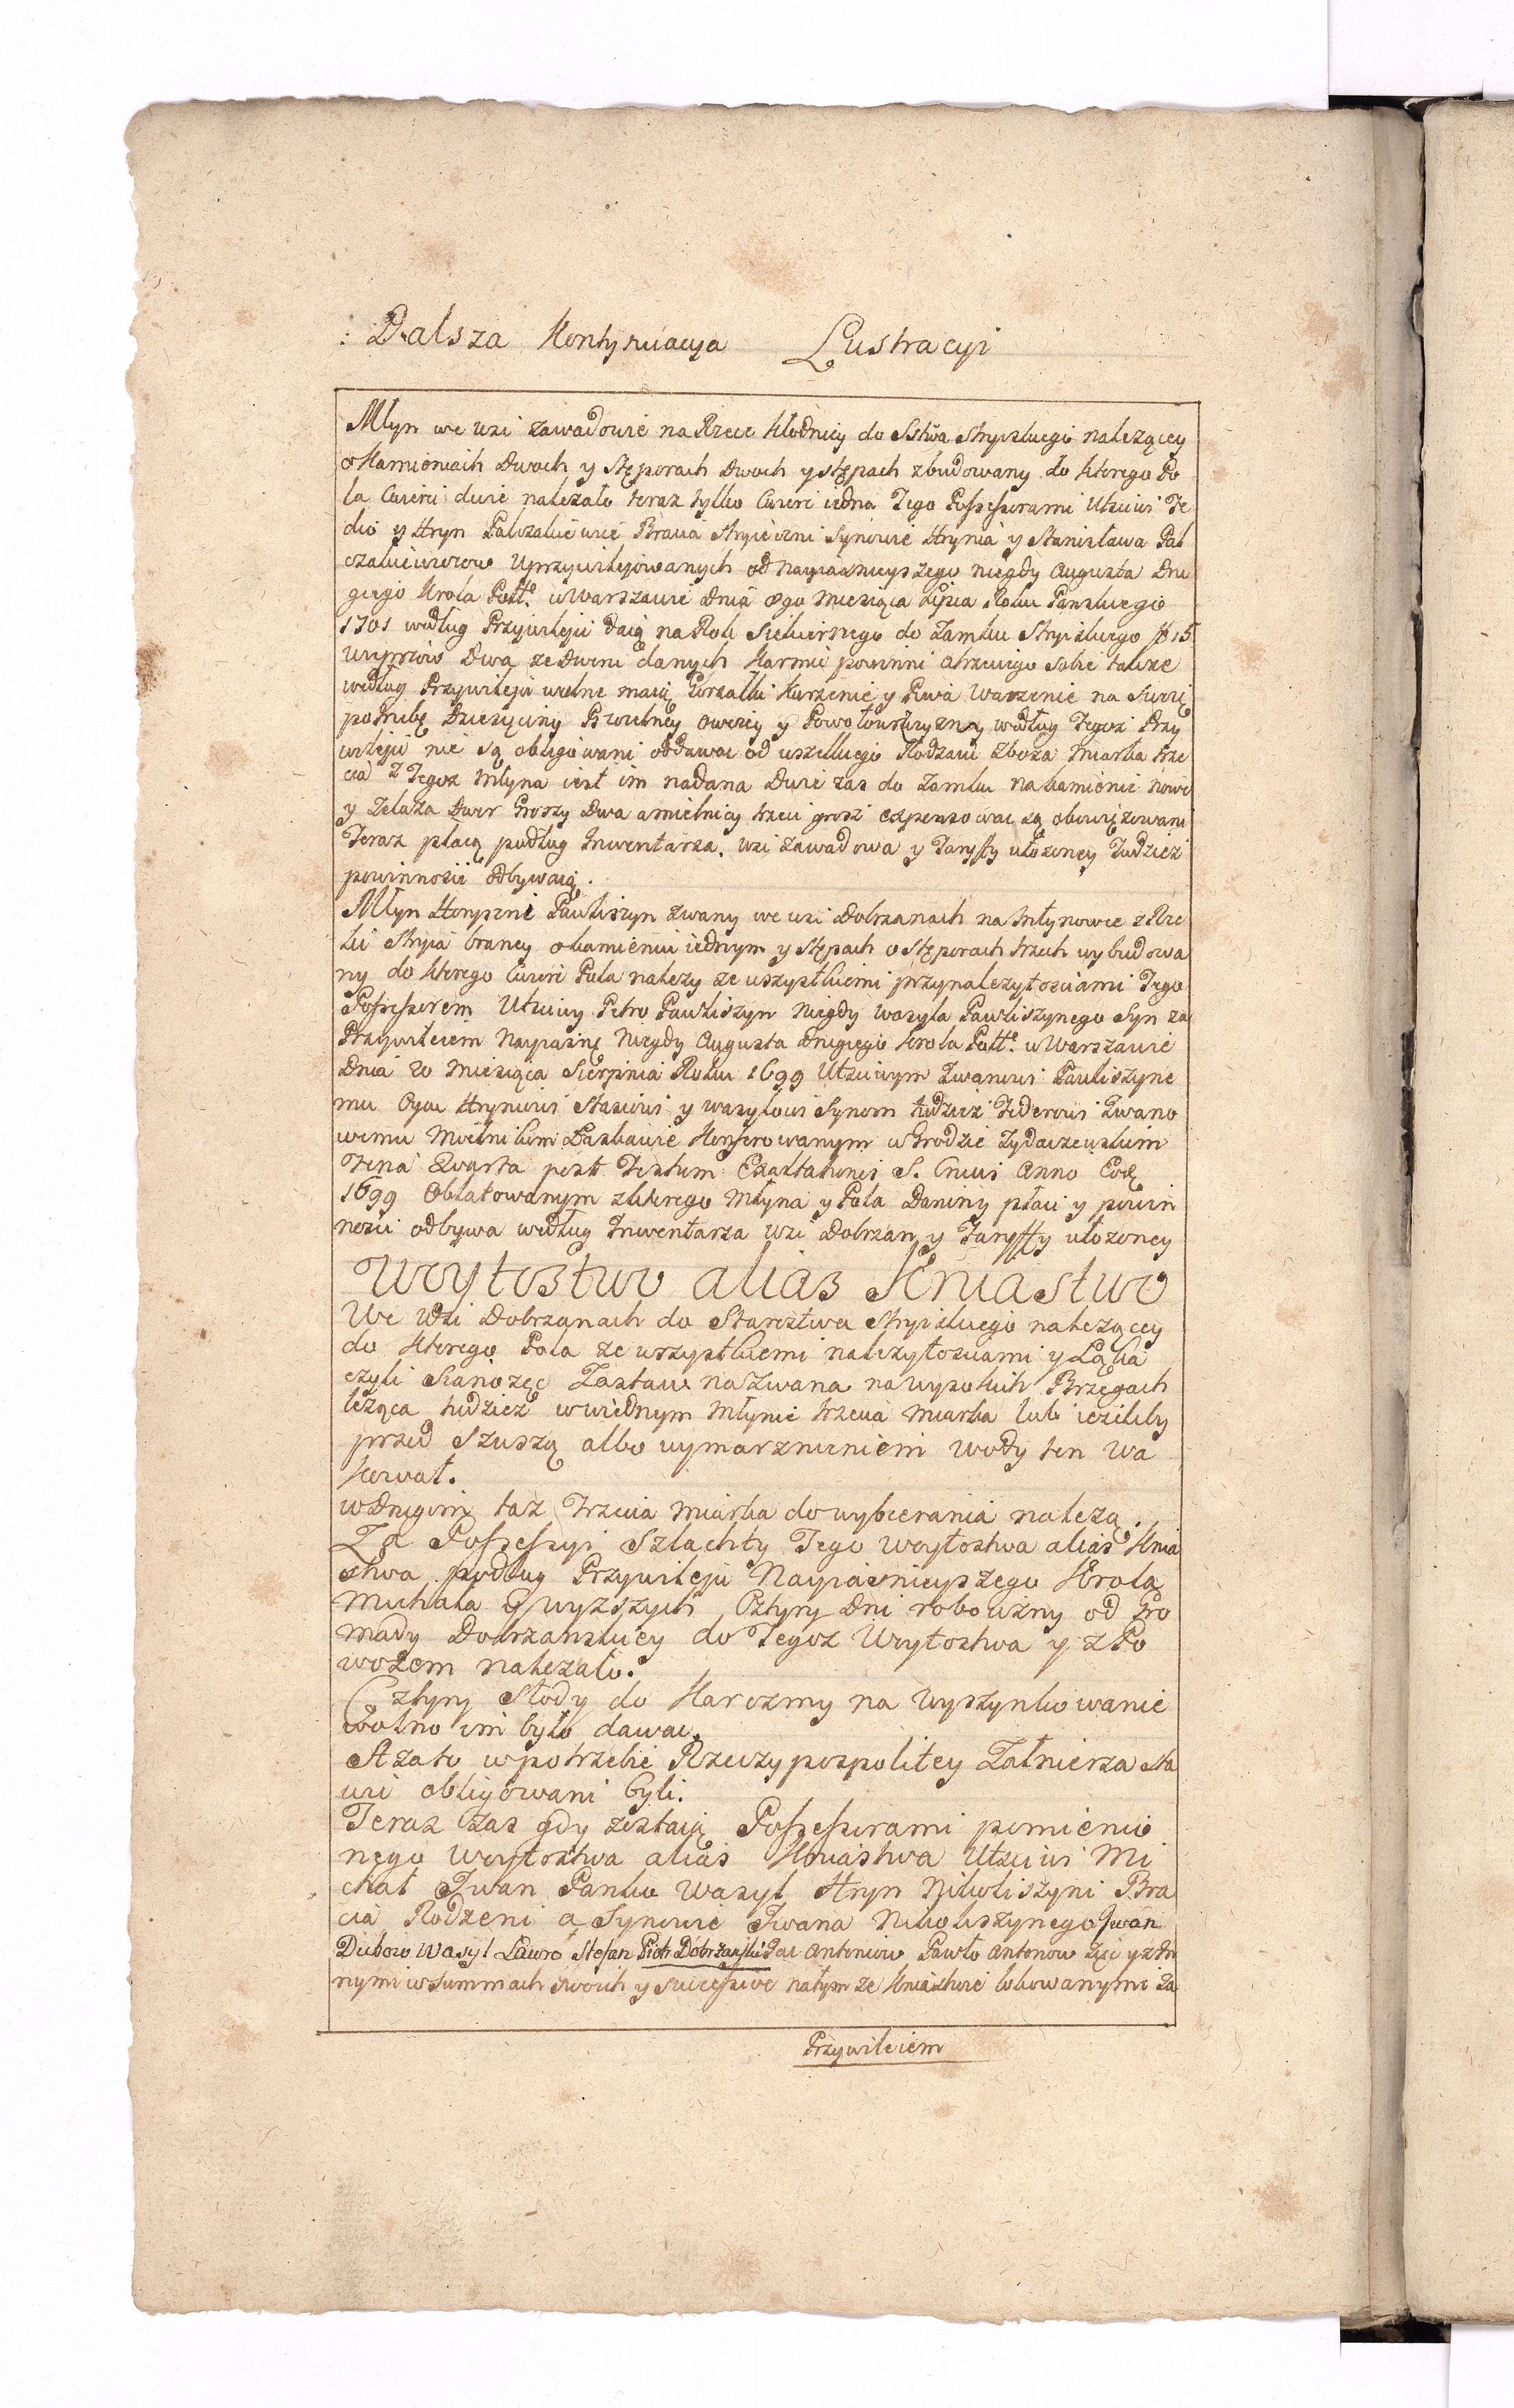 Dalsza Kontynuacya Lustracyi
Młyn we wsi Zawadowie na Rzece Kłodnicy do Sstwa Stryiskiego nalezący
o Kamieniach Dwoch y Stęporach Dwoch y stępach zbudowany do ktorego Po
la Cwierci dwie nalezało teraz tylko Cwierc iedna Tego Possessorami Utciwi Fe
dio y Hryn Palczakiewicze Bracia Stryieczni Synowie Hrynia y Stanisława Pal
czakiewiczow Uprzywilejowanych od Nayiasnieyszego niegdy Augusta Dru
giego Krola Polłe. w Warszawie Dnia 8go Miesiąca Lipca Roku Panskiego
1701 według Przywileju daią na Rok Siekiernego do Zamku Stryiskiego f 15
Wieprzow Dwa ze Dworu danych Karmic powinni a trzeciego sobie takze
według Przywileju wolne maią Gorzałki Kurzenie y Piwa Warzenie na Swoię
potrzebę Dziesięciny Pszczelney Owczey y Powołowszczyzny według Tegoz Przy
wileju nie są obligowani oddawac od wszelkiego Rodzaiu Zboza miarka trze
cia z Tegoz Młyna iest im nadana Dwie zas do Zamku na kamienie nowe
y Zelaza Dwor Groszy Dwa a mielnicy trzeci grosz expensowac są obowiązowani
Teraz płacą podług Inwentarza wsi Zawadowa y Taryffy ułozoney Tudziez
powinnosci odbywaią.
Młyn Koryszni Pawliszyn zwany we wsi Dobrzanach na Młynowce z Rze
ki Stryia braney o kamieniu iednym y stępach o stęporach trzech wybudowa
ny do ktorego Cwierc Pola nalezy ze wszystkiemi przynalezytosciami Tego
Possessorem Utciwy Petro Pawliszyn Niegdy Wasyla Pawliszynego Syn za
Przywileiem Nayiasnę Niegdy Augusta Drugiego Krola Polłe. w Warszawie
Dnia 20 Miesiąca Sierpnia Roku 1699 Utciwym Iwanowi Pawliszyne
mu Oycu Hryniowi Stasiowi y Wasylowi Synom tudziez Fedorowi Iwano
wemu Mielnikom Łaskawie Konferowanym w Grodzie Zydaczewskim
Feria Quarta post Festum Exaltationis S. Crucis Anno Eodę
1699 Oblatowanym z ktorego Młyna y Pola Daniny płaci y powin
nosci odbywa według Inwentarza wsi Dobrzan y Taryffy ułozoney
Woytostwo alias Kniastwo
We Wsi Dobrzanach do Starostwa Stryiskiego nalezącey
do ktorego Pola ze wszystkiemi nalezytosciami y Łąka
czyli Sianozęc Zastaw nazwana na wysokich Brzegach
leząca tudziez w iednym Młynie trzecia miarka lub iezliby
przed Szuszą albo wymarznieniem wody ten wa
kował.
w Drugim taz Trzecia miarka do wybierania nalezą.
Za Possessyi Szlachty Tego Woytostwa alias Knia
stwa podług Przywileju Nayiasnieyszego Krola
Michała y wyzszych Cztyry Dni robocizny od Gro
mady Dobrzanskiey do Tegoz Woytostwa y z Po
wozem nalezało.
Cztyry Słody do Karczmy na wyszynkowanie
wolno im było dawac.
A zato w potrzebie Rzeczypospolitey Załnierza sta
wic obligowani byli.
Teraz zas gdy zostaią Possessorami pomienio
nego Woytostwa alias Kniastwa Utciwi Mi
chał Iwan Panko Wasyl Hryn Nikoliszyni Bra
cia Rodzeni a Synowie Iwana Nikoliszynego Iwan
Dubow Wasyl Lawro Stefan Piotr Dobrzański Jac Antoniow Pawło Antonow Zięc y z In
nymi w Summach swoich y successive na tym ze Kniastwie lokowanymi za
Przywileiem